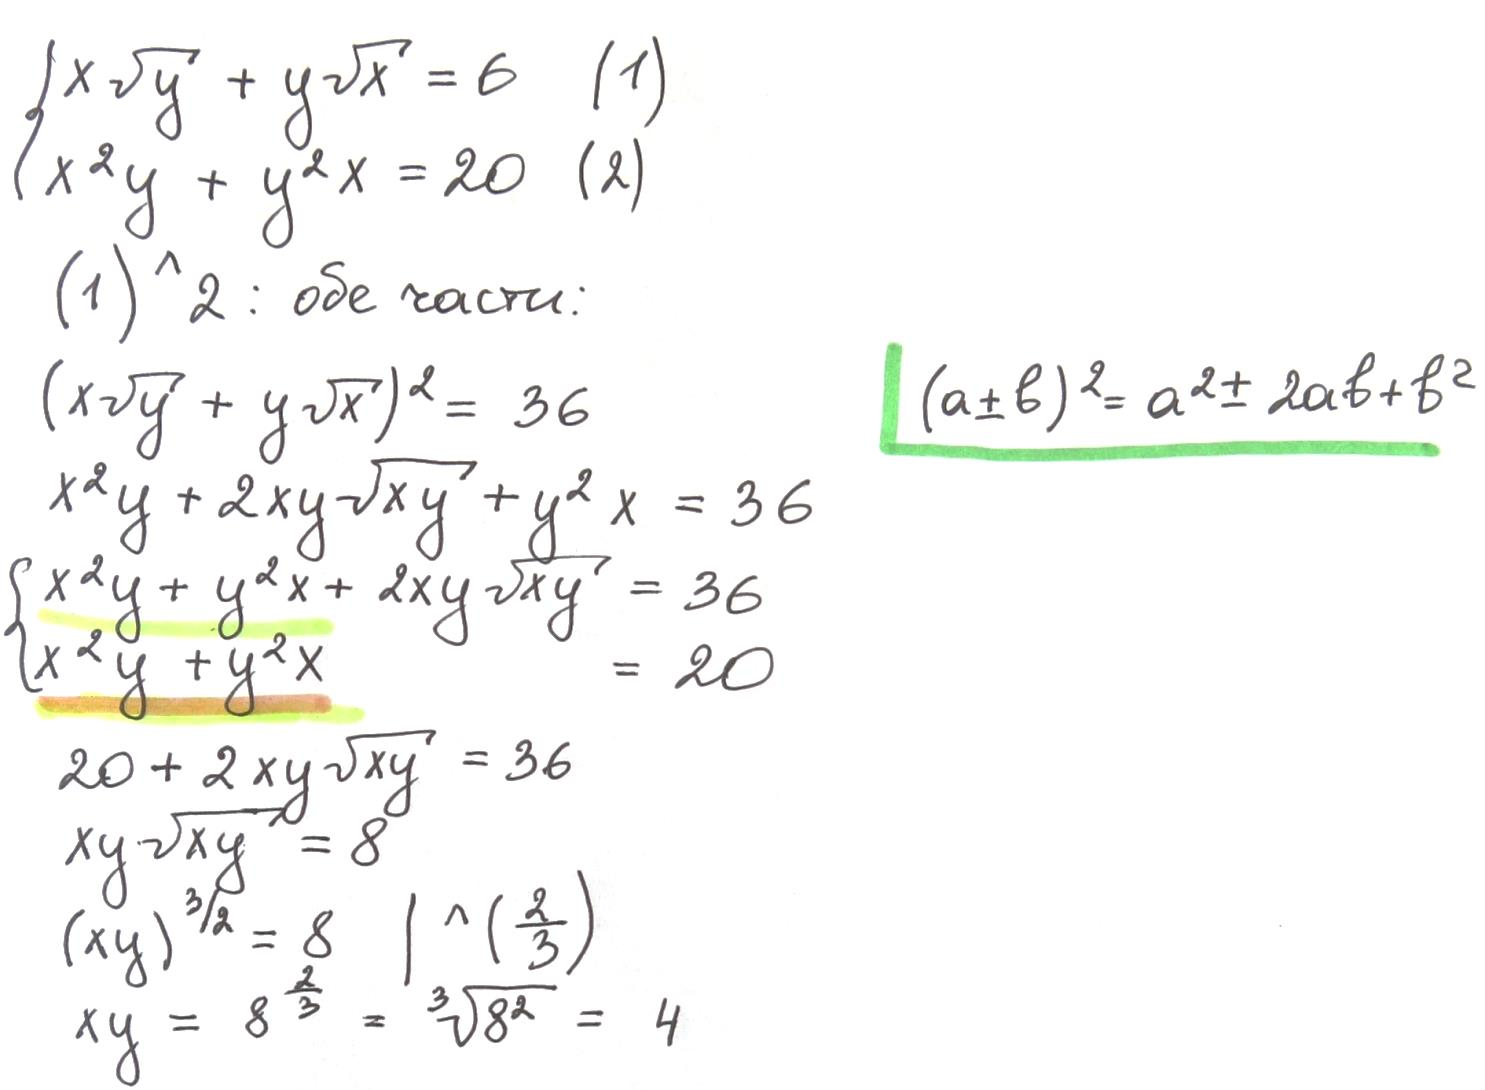 x√y + y√x = 6 (1)
x²y + y²x = 20 (2)
(1)^2 : обе части:
(x√y + y√x)² = 36
(a±b)² = a² ± 2ab + b²
x²y + 2xy√xy + y²x = 36
x²y + y²x + 2xy√xy = 36
x²y + y²x = 20
20 + 2xy√xy = 36
xy√xy = 8
(xy)^3/2 = 8 | ^(2/3)
xy = 8^2/3 = ³√8² = 4